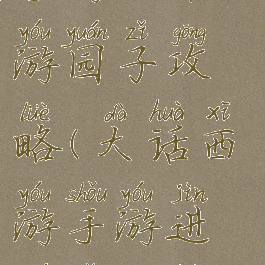 yóu yuán zǐ gōng
游园子攻
lüè dà huà xī
略(大话西
yóu shǒu yóu jìn
游手游进